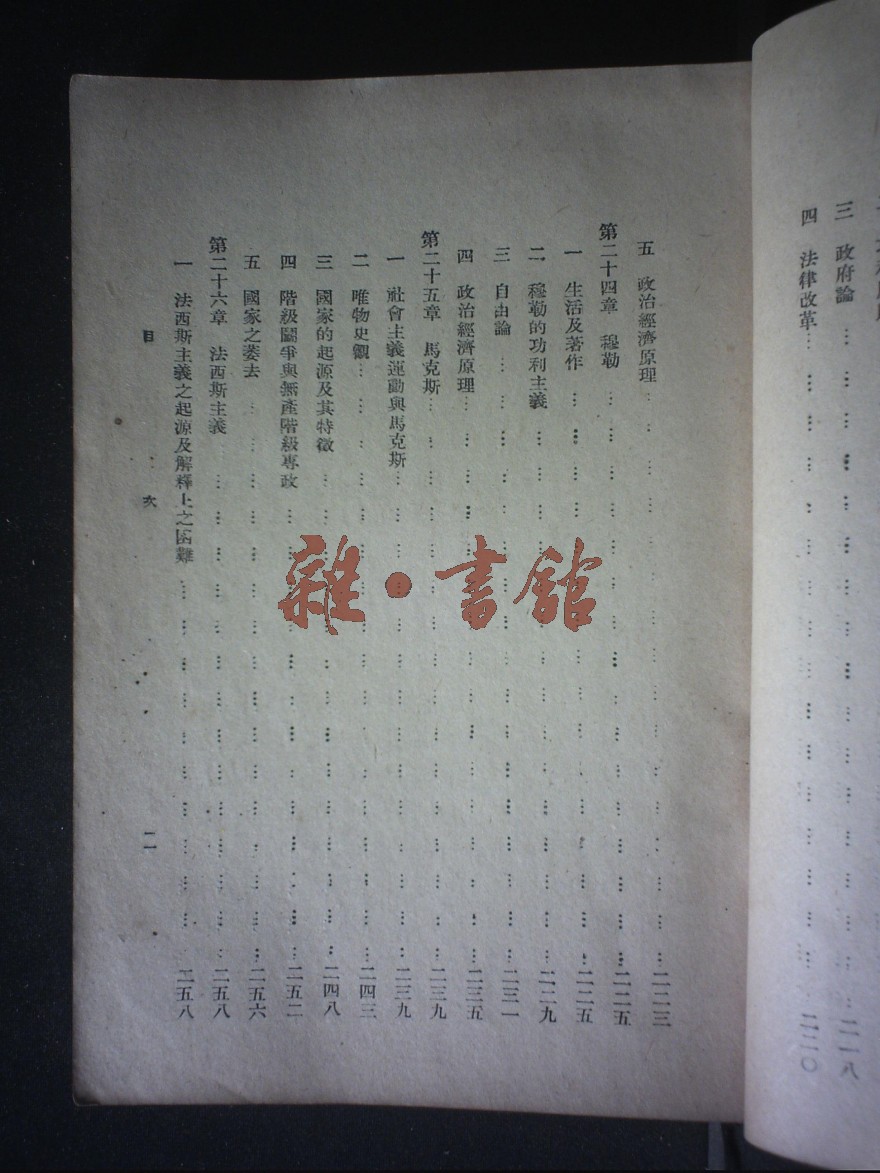 三 政府論 … 二一八
四 法律改革 … 二二〇
五 政治經濟原理 … 二二三
第二十四章 穆勒 … 二二五
一 生活及著作 … 二二五
二 穆勒的功利主義 … 二二九
三 自由論 … 二三一
四 政治經濟原理 … 二三五
第二十五章 馬克斯 … 二三九
一 社會主義運動與馬克斯 … 二三九
二 唯物史觀 … 二四三
三 國家的起源及其特徵 … 二四八
四 階級鬭爭與無產階級專政 … 二五二
五 國家之萎去 … 二五六
第二十六章 法西斯主義 … 二五八
一 法西斯主義之起源及解釋上之困難 … 二五八
目 次 二
雜·書館